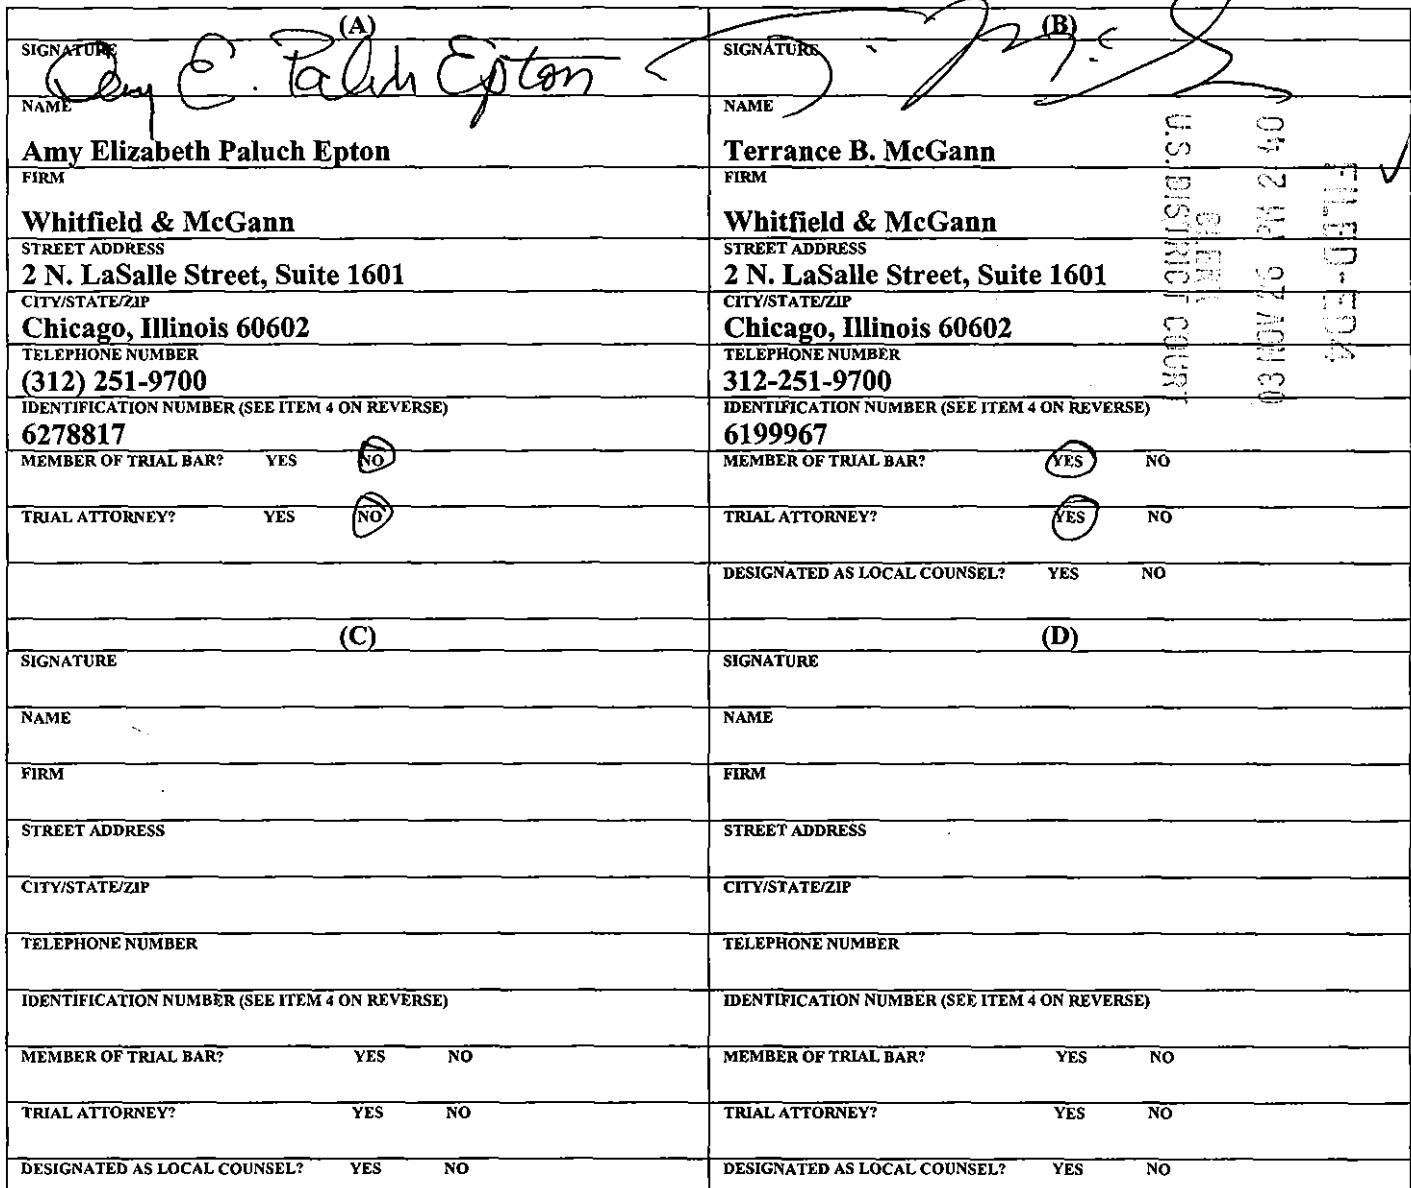 (A)
SIGNATURE
Amy E. Paluch Epton
NAME
Amy Elizabeth Paluch Epton
FIRM
Whitfield & McGann
STREET ADDRESS
2 N. LaSalle Street, Suite 1601
CITY/STATE/ZIP
Chicago, Illinois 60602
TELEPHONE NUMBER
(312) 251-9700
IDENTIFICATION NUMBER (SEE ITEM 4 ON REVERSE)
6278817
MEMBER OF TRIAL BAR? YES NO
TRIAL ATTORNEY? YES NO
(B)
SIGNATURE
NAME
Terrance B. McGann
FIRM
Whitfield & McGann
STREET ADDRESS
2 N. LaSalle Street, Suite 1601
CITY/STATE/ZIP
Chicago, Illinois 60602
TELEPHONE NUMBER
312-251-9700
IDENTIFICATION NUMBER (SEE ITEM 4 ON REVERSE)
6199967
MEMBER OF TRIAL BAR? YES NO
TRIAL ATTORNEY? YES NO
DESIGNATED AS LOCAL COUNSEL? YES NO
03 NOV 26 PM 2:40
CLERK
U.S. DISTRICT COURT
(C)
SIGNATURE
NAME
FIRM
STREET ADDRESS
CITY/STATE/ZIP
TELEPHONE NUMBER
IDENTIFICATION NUMBER (SEE ITEM 4 ON REVERSE)
MEMBER OF TRIAL BAR? YES NO
TRIAL ATTORNEY? YES NO
DESIGNATED AS LOCAL COUNSEL? YES NO
(D)
SIGNATURE
NAME
FIRM
STREET ADDRESS
CITY/STATE/ZIP
TELEPHONE NUMBER
IDENTIFICATION NUMBER (SEE ITEM 4 ON REVERSE)
MEMBER OF TRIAL BAR? YES NO
TRIAL ATTORNEY? YES NO
DESIGNATED AS LOCAL COUNSEL? YES NO